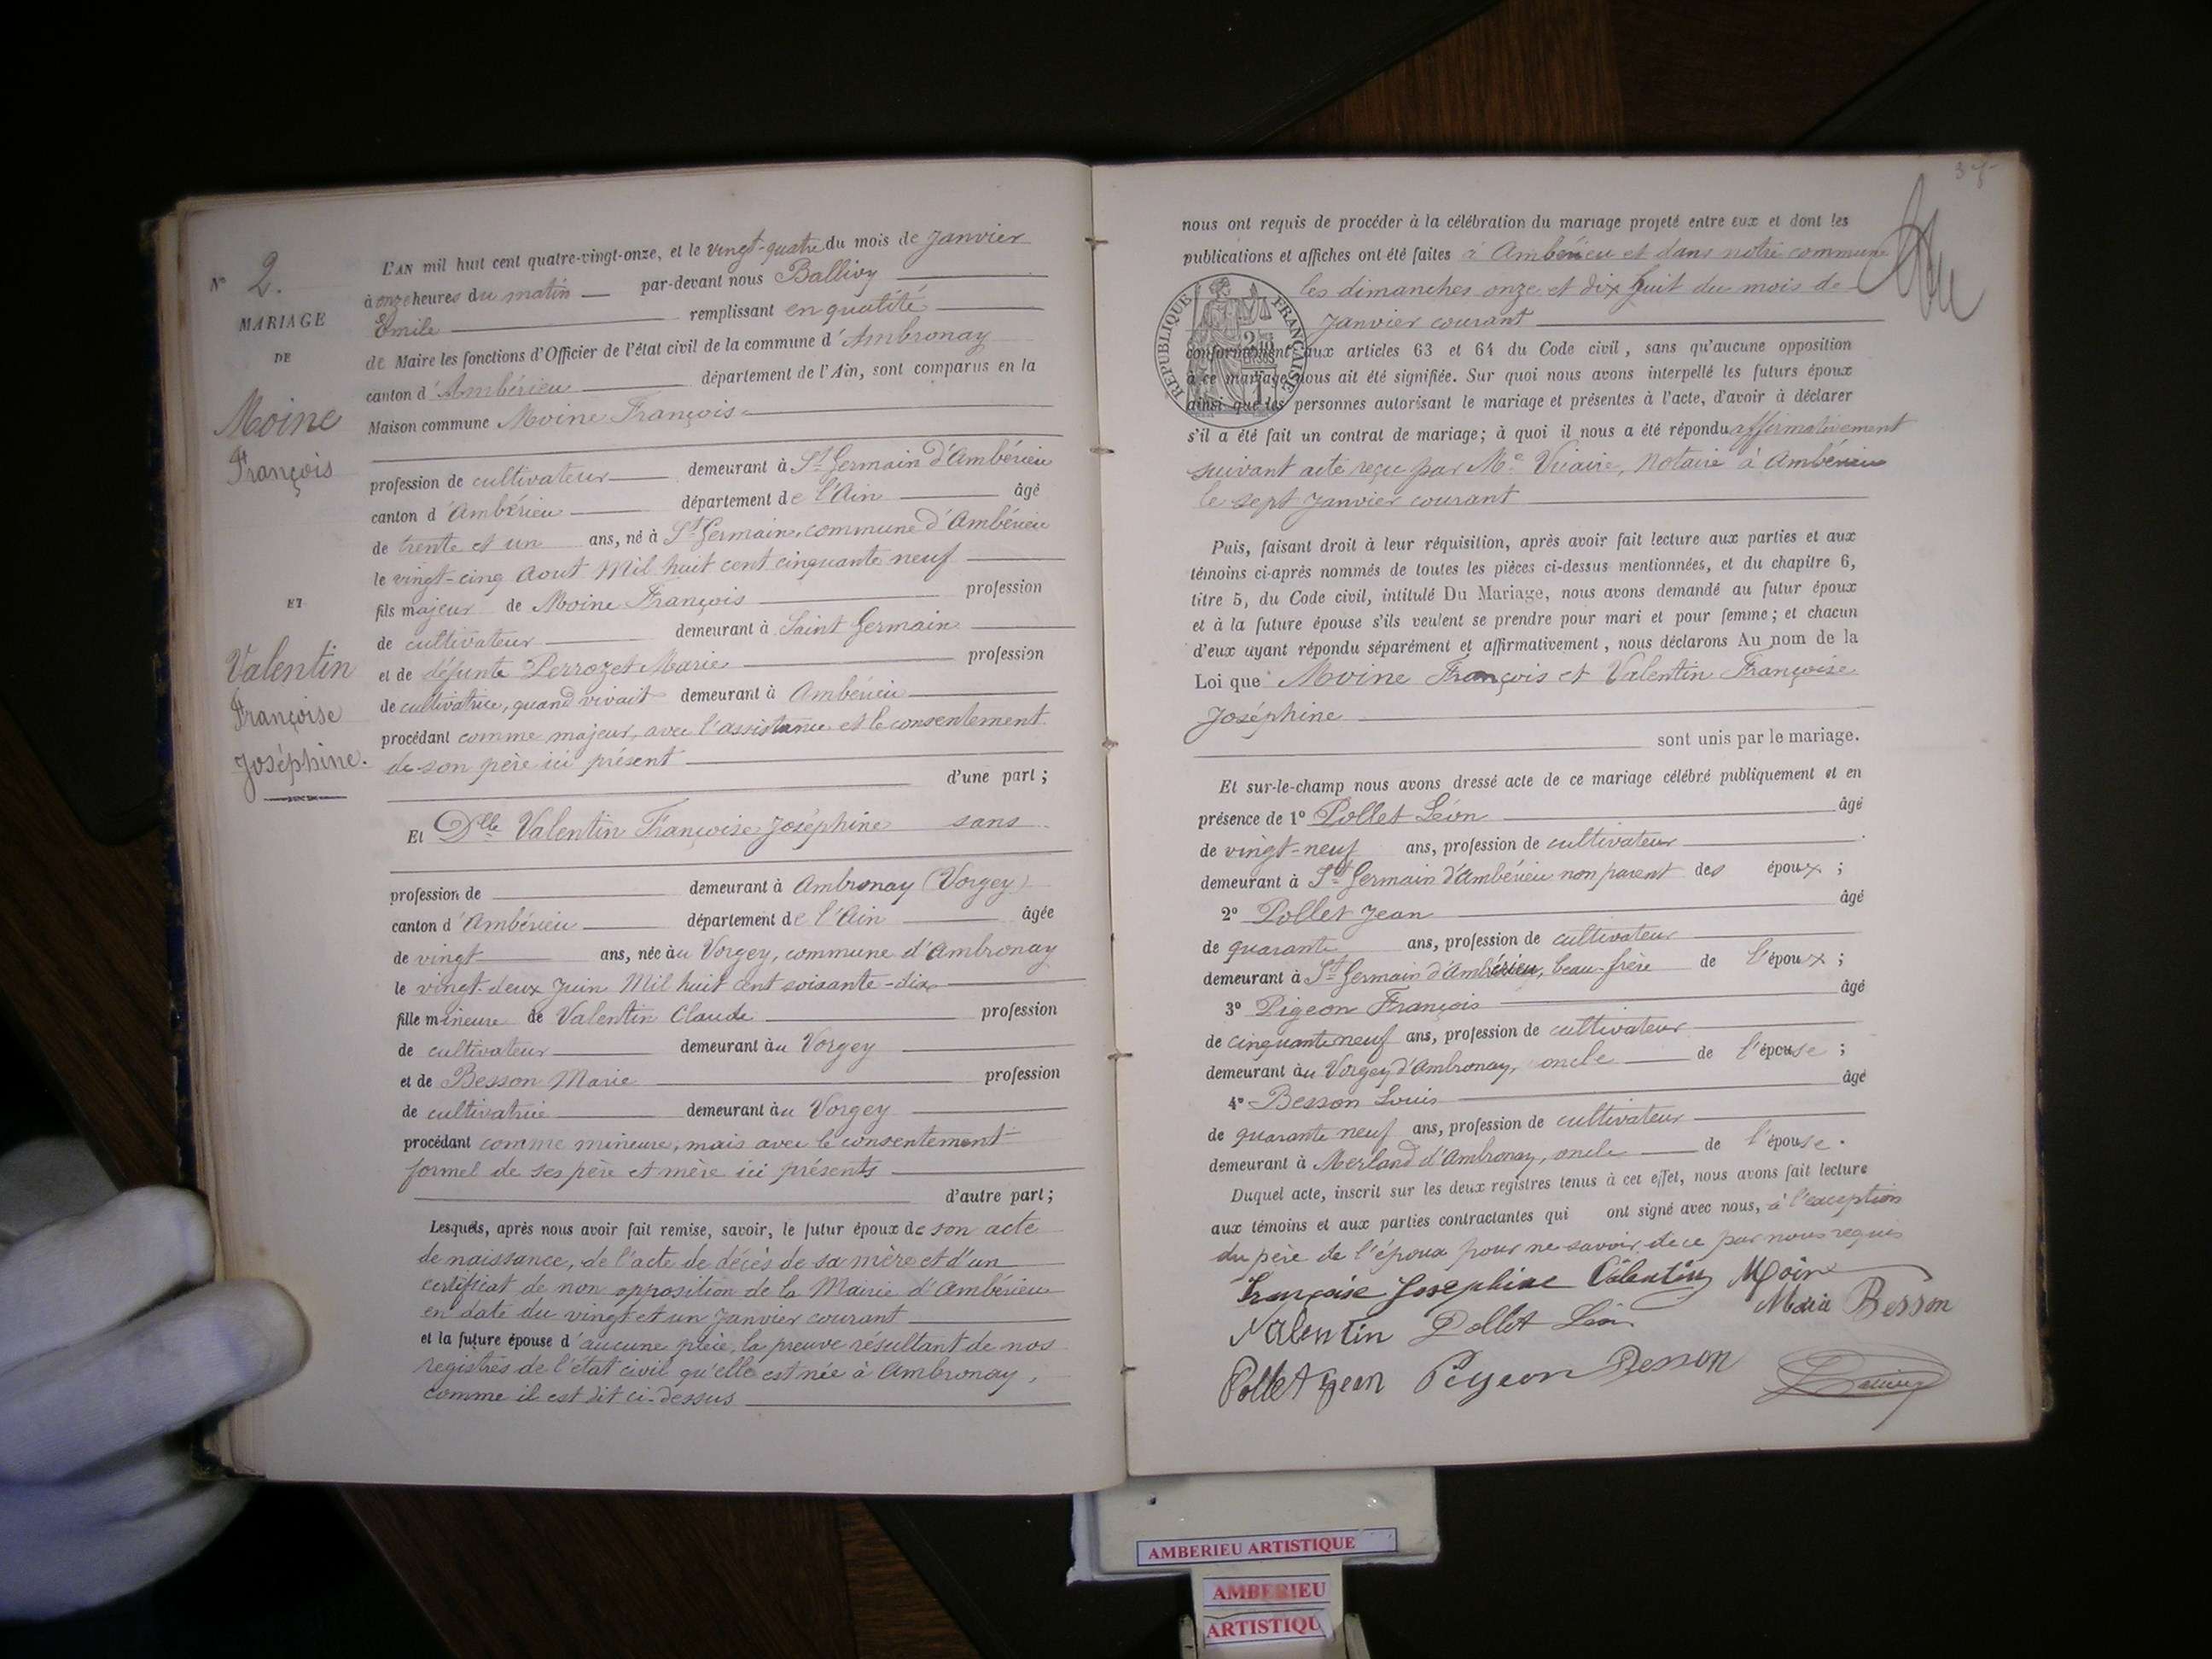 N° 2.
MARIAGE
DE
Moine
François
ET
Valentin
Françoise
Joséphine.
L'AN mil huit cent quatre-vingt-onze, et le vingt-quatre du mois de Janvier
à onze heures du matin par-devant nous Ballivy
Emile remplissant en qualité
de Maire les fonctions d'Officier de l'état civil de la commune d'Ambronay
canton d'Ambérieu département de l'Ain, sont comparus en la
Maison commune Moine François
profession de cultivateur demeurant à St Germain d'Ambérieu
canton d'Ambérieu département de l'Ain âgé
de trente et un ans, né à St Germain, commune d'Ambérieu
le vingt-cinq Aout Mil huit cent cinquante neuf
fils majeur de Moine François profession
de cultivateur demeurant à Saint Germain
et de défunte Perrozet Marie profession
de cultivatrice, quand vivait demeurant à Ambérieu
procédant comme majeur, avec l'assistance et le consentement
de son père ici présent
d'une part;
Et Dlle Valentin Françoise Joséphine sans
profession de demeurant à Ambronay (Vorgey)
canton d'Ambérieu département de l'Ain âgée
de vingt ans, née au Vorgey, commune d'Ambronay
le vingt-deux Juin Mil huit cent soixante-dix
fille mineure de Valentin Claude profession
de cultivateur demeurant au Vorgey
et de Besson Marie profession
de cultivatrice demeurant au Vorgey
procédant comme mineure, mais avec le consentement
formel de ses père et mère ici présents
d'autre part;
Lesquels, après nous avoir fait remise, savoir, le futur époux de son acte
de naissance, de l'acte de décès de sa mère et d'un
certificat de non opposition de la Mairie d'Ambérieu
en date du vingt et un Janvier courant
et la future épouse d'aucune pièce, la preuve résultant de nos
registres de l'état civil qu'elle est née à Ambronay,
comme il est dit ci-dessus
nous ont requis de procéder à la célébration du mariage projeté entre eux et dont les
publications et affiches ont été faites à Ambérieu et dans notre commune
les dimanches onze et dix huit du mois de
Janvier courant
RÉPUBLIQUE FRANÇAISE
conformément aux articles 63 et 64 du Code civil, sans qu'aucune opposition
à ce mariage nous ait été signifiée. Sur quoi nous avons interpellé les futurs époux
ainsi que les personnes autorisant le mariage et présentes à l'acte, d'avoir à déclarer
s'il a été fait un contrat de mariage; à quoi il nous a été répondu affirmativement
suivant acte reçu par Me Vicaire, Notaire à Ambérieu
le sept Janvier courant
Puis, faisant droit à leur réquisition, après avoir fait lecture aux parties et aux
témoins ci-après nommés de toutes les pièces ci-dessus mentionnées, et du chapitre 6,
titre 5, du Code civil, intitulé Du Mariage, nous avons demandé au futur époux
et à la future épouse s'ils veulent se prendre pour mari et pour femme; et chacun
d'eux ayant répondu séparément et affirmativement, nous déclarons Au nom de la
Loi que Moine François et Valentin Françoise
Joséphine
sont unis par le mariage.
Et sur-le-champ nous avons dressé acte de ce mariage célébré publiquement et en
présence de 1° Pollet Léon âgé
de vingt-neuf ans, profession de cultivateur
demeurant à St Germain d'Ambérieu non parent des époux;
2° Pollet Jean âgé
de quarante ans, profession de cultivateur
demeurant à St Germain d'Ambérieu, beau-frère de l'époux;
3° Pigeon François âgé
de cinquante neuf ans, profession de cultivateur
demeurant au Vorgey d'Ambronay, oncle de l'épouse;
4° Besson Louis âgé
de quarante neuf ans, profession de cultivateur
demeurant à Merland d'Ambronay, oncle de l'épouse.
Duquel acte, inscrit sur les deux registres tenus à cet effet, nous avons fait lecture
aux témoins et aux parties contractantes qui ont signé avec nous, à l'exception
du père de l'époux pour ne savoir, de ce par nous requis
Françoise Josephine Valentin Moine
Maria Besson
Valentin Pollet Léon
Pollet Jean Pigeon Besson
AMBERIEU ARTISTIQUE
AMBERIEU
ARTISTIQU